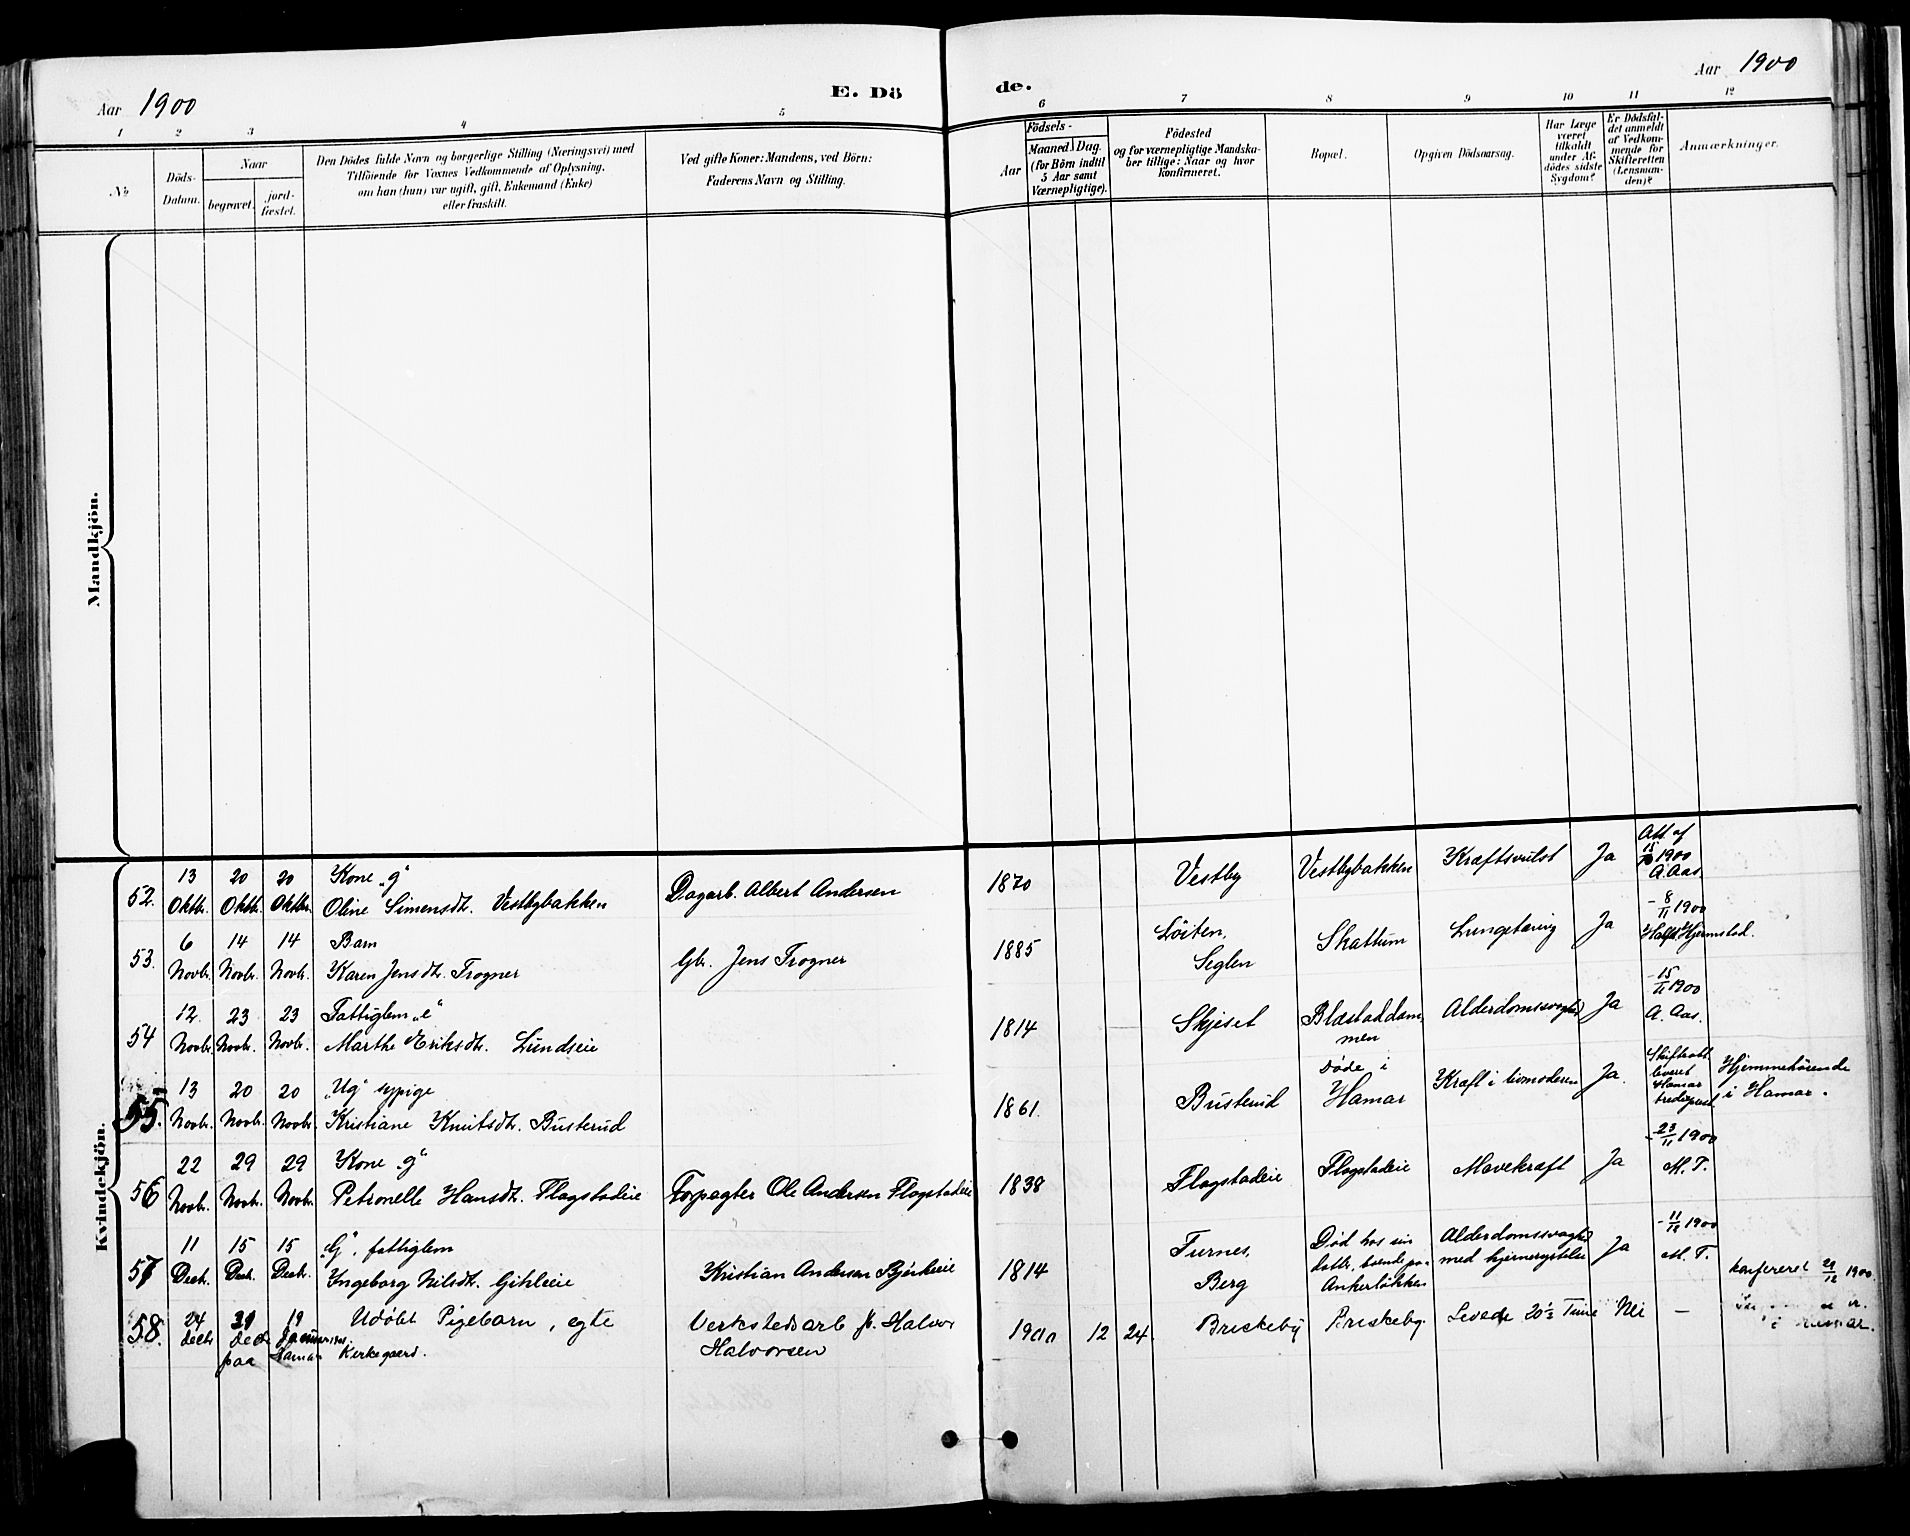 Aar 1900
E. Dö
de.
Aar 1900
1 2 3 4 5 6 7 8 9 10 11 12
No
Döds-
Datum.
Naar
begravet.
jord-
fæstet.
Den Dödes fulde Navn og borgerlige Stilling (Næringsvei) med
Tilföiende for Voxnes Vedkommende af Oplysning,
om han (hun) var ugift, gift, Enkemand (Enke)
eller fraskilt.
Ved gifte Koner: Mandens, ved Börn:
Faderens Navn og Stilling.
Födsels-
Aar
Maaned Dag.
(for Börn indtil
5 Aar samt
Værnepligtige).
Födested
og for værnepligtige Mandska-
ber tillige: Naar og hvor
konfirmeret.
Bopæl.
Opgiven Dödsaarsag.
Har Læge
været
tilkaldt
under Af-
dödes sidste
Sygdom?
Er Dödsfal-
det anmeldt
af Vedkom-
mende for
Skifteretten
(Lensman-
den)?
Anmærkninger.
Mandkjön.
Kvindekjön.
52. 13 Oktbr. 20 Oktb. 20 Oktbr.
Kone „g“
Oline Simensdt. Vestbybakken
Dagarb. Albert Andersen
1870
Vestby
Vestbybakken
Kræftsvulst
Ja
Att. af
15/10 1900
A. Aas
53. 6 Novbr. 14 Novbr. 14 Novbr.
Barn
Karen Jensdt. Trogner
Gbr. Jens Trogner
1885
Löiten,
Seglen
Skattum
Lungetæring
Ja
- 8/11 1900
Halfd. Hjermstad.
54 12. Novbr. 23 Novbr. 23 Novbr.
Fattiglem „e“
Marthe Eriksdt. Lundseie
1814
Skjeset
Blæstaddam-
men
Alderdomssvaghed
Ja
- 15/11 1900
A. Aas.
55. 13 Novbr. 20 Novbr. 20 Novbr.
„Ug“ sypige
Kristiane Knutsdt. Busterud
1861.
Busterud
Døde i
Hamar
Kræft i livmoderen
Ja.
Skifteatt.
leveret
Hamar
Hjemmehörende
i Hamar.
56 22 Novbr. 29 Novbr. 29 Novbr.
Kone „g“
Petronelle Hansdt. Flagstadeie
Forpagter Ole Andersen Flagstadeie
1838
Flagstadeie
Flagstadeie
Mavekræft
Ja
- 23/11 1900
M. T.
57 11 Decb. 15 Decb. 15 Decb.
„G“, fattiglem
Ingeborg Nilsdt. Gihleeie
Kristian Andersen Bjerkeeie
1814
Furnes,
Berg
Død hos sin
datt., boende paa
Ankerløkken
Alderdomssvaghed
med hjernerystelse
Ja
- 11/12 1900
M. T.
58. 24 Decbr 31 Decb 19 Januar
paa Hamar Kirkegaard.
Udøbt Pigebarn, egte
Verkstedsarb. Halvor
Halvorsen
1900 12 24.
Briskeby
Briskeby.
Levede 20½ Time
Nei
—
Konfereret 29/12 1900.